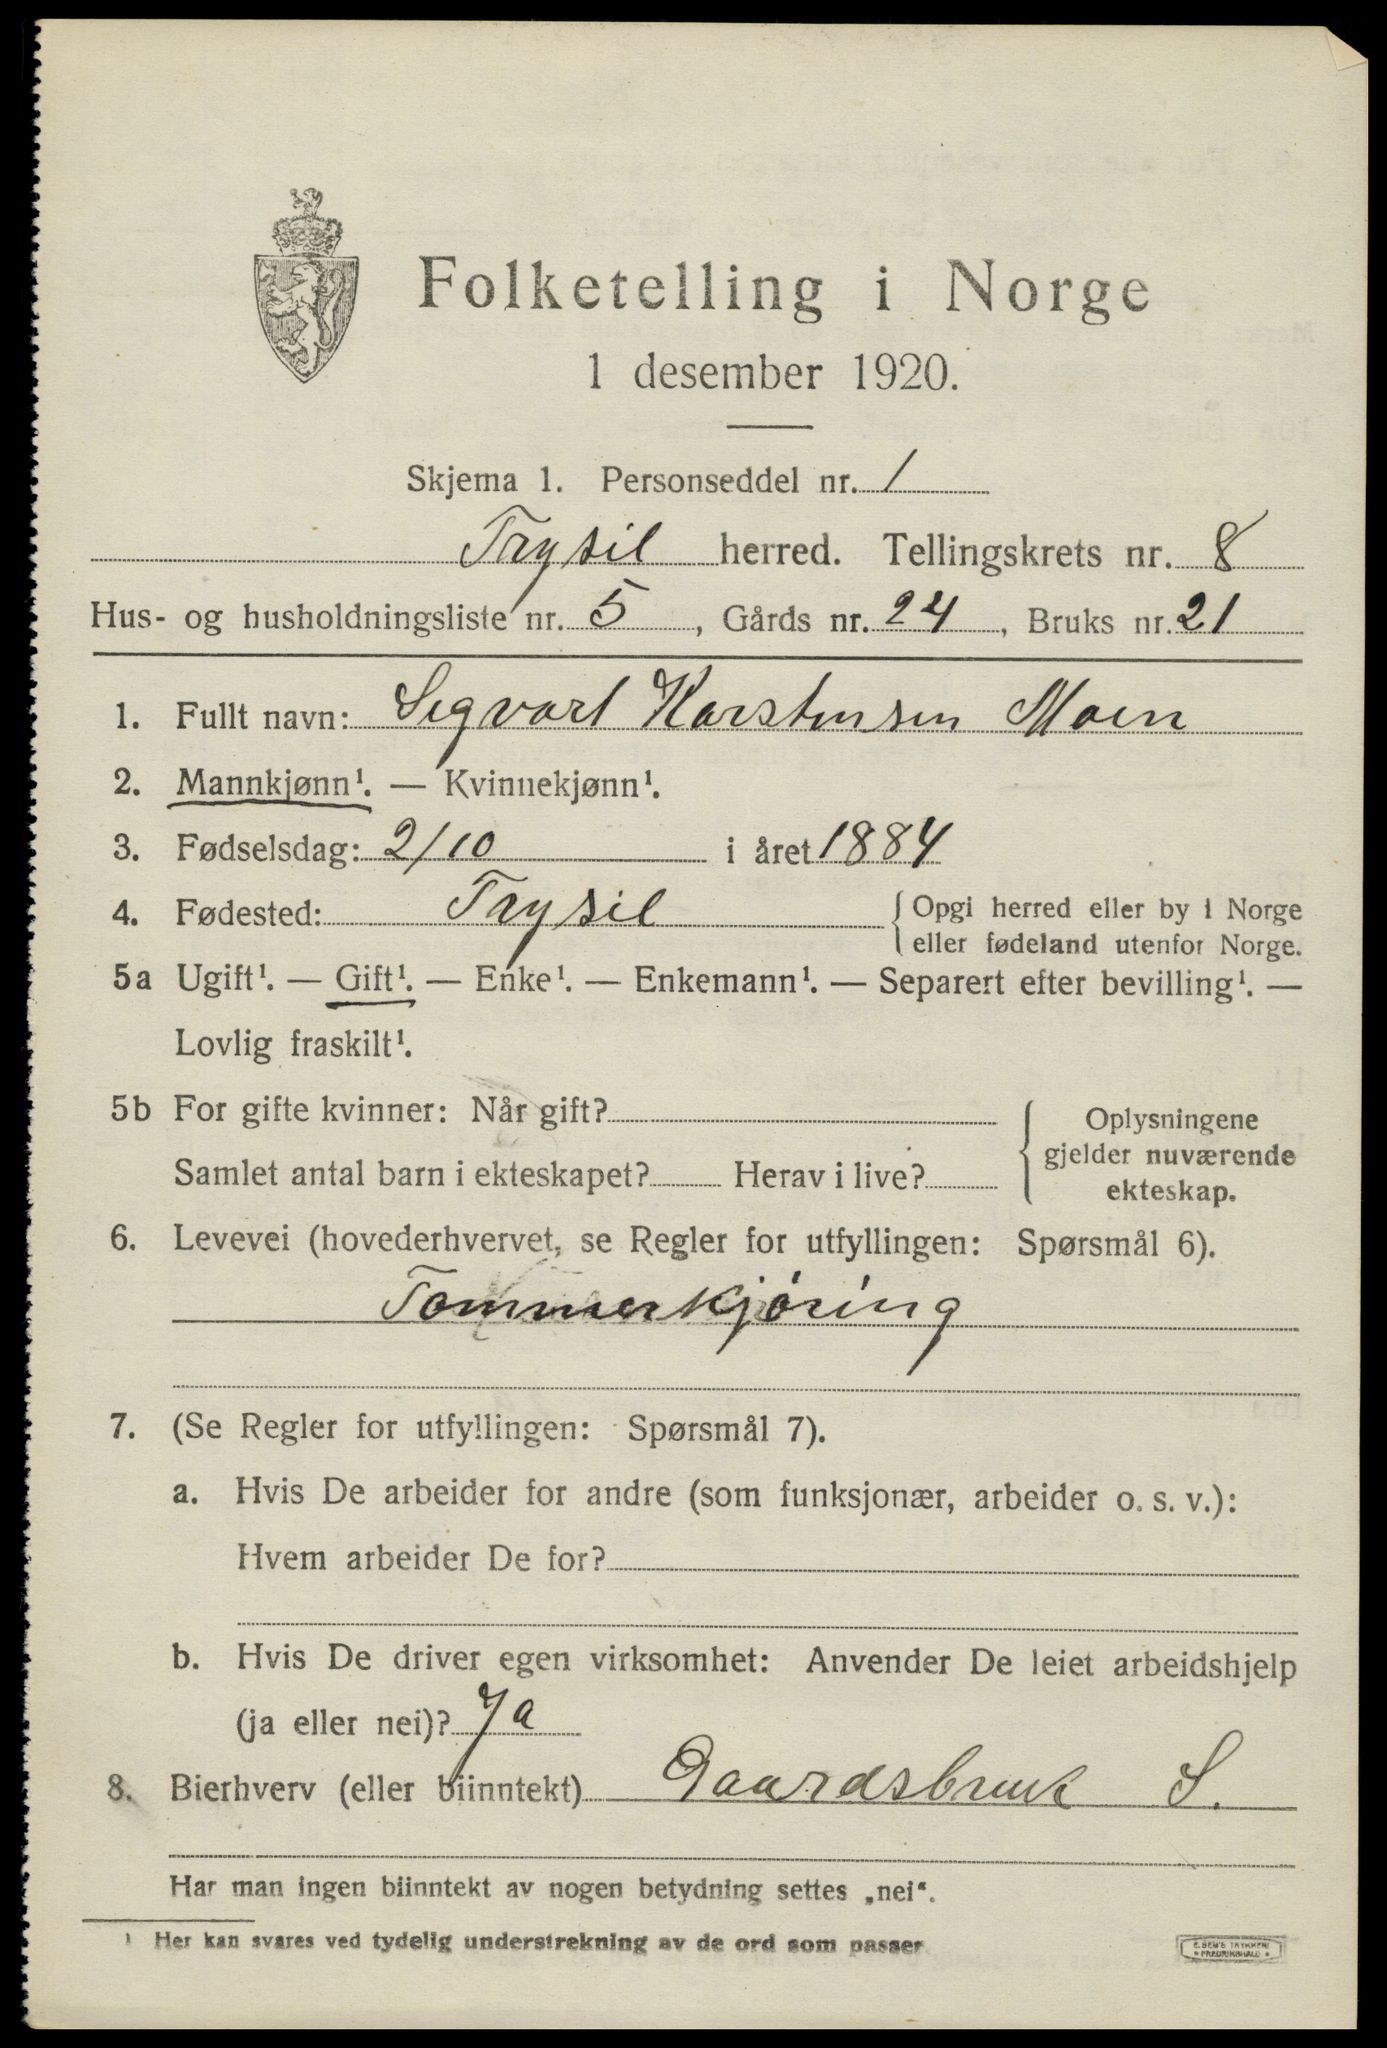 Folketelling i Norge
1 desember 1920.
Skjema 1. Personseddel nr. 1
Trysil herred. Tellingskrets nr. 8
Hus- og husholdningsliste nr. 5, Gårds nr. 24, Bruks nr. 21
1. Fullt navn: Sigvart Karstensen Moen
2. Mannkjønn¹. — Kvinnekjønn¹.
3. Fødselsdag: 2/10 i året 1884
4. Fødested: Trysil { Opgi herred eller by i Norge
eller fødeland utenfor Norge.
5a Ugift¹. — Gift¹. — Enke¹. — Enkemann¹. — Separert efter bevilling¹. —
Lovlig fraskilt¹.
5b For gifte kvinner: Når gift?
Samlet antal barn i ekteskapet? Herav i live?
{ Oplysningene
gjelder nuværende
ekteskap.
6. Levevei (hovederhvervet, se Regler for utfyllingen: Spørsmål 6).
Tommerkjöring
7. (Se Regler for utfyllingen: Spørsmål 7).
a. Hvis De arbeider for andre (som funksjonær, arbeider o. s. v.):
Hvem arbeider De for?
b. Hvis De driver egen virksomhet: Anvender De leiet arbeidshjelp
(ja eller nei)? Ja
8. Bierhverv (eller biinntekt) Gaardsbruk S.
Har man ingen biinntekt av nogen betydning settes „nei“.
¹ Her kan svares ved tydelig understrekning av de ord som passer
E. SEM'S TRYKKERI
• FREDRIKSHALD •